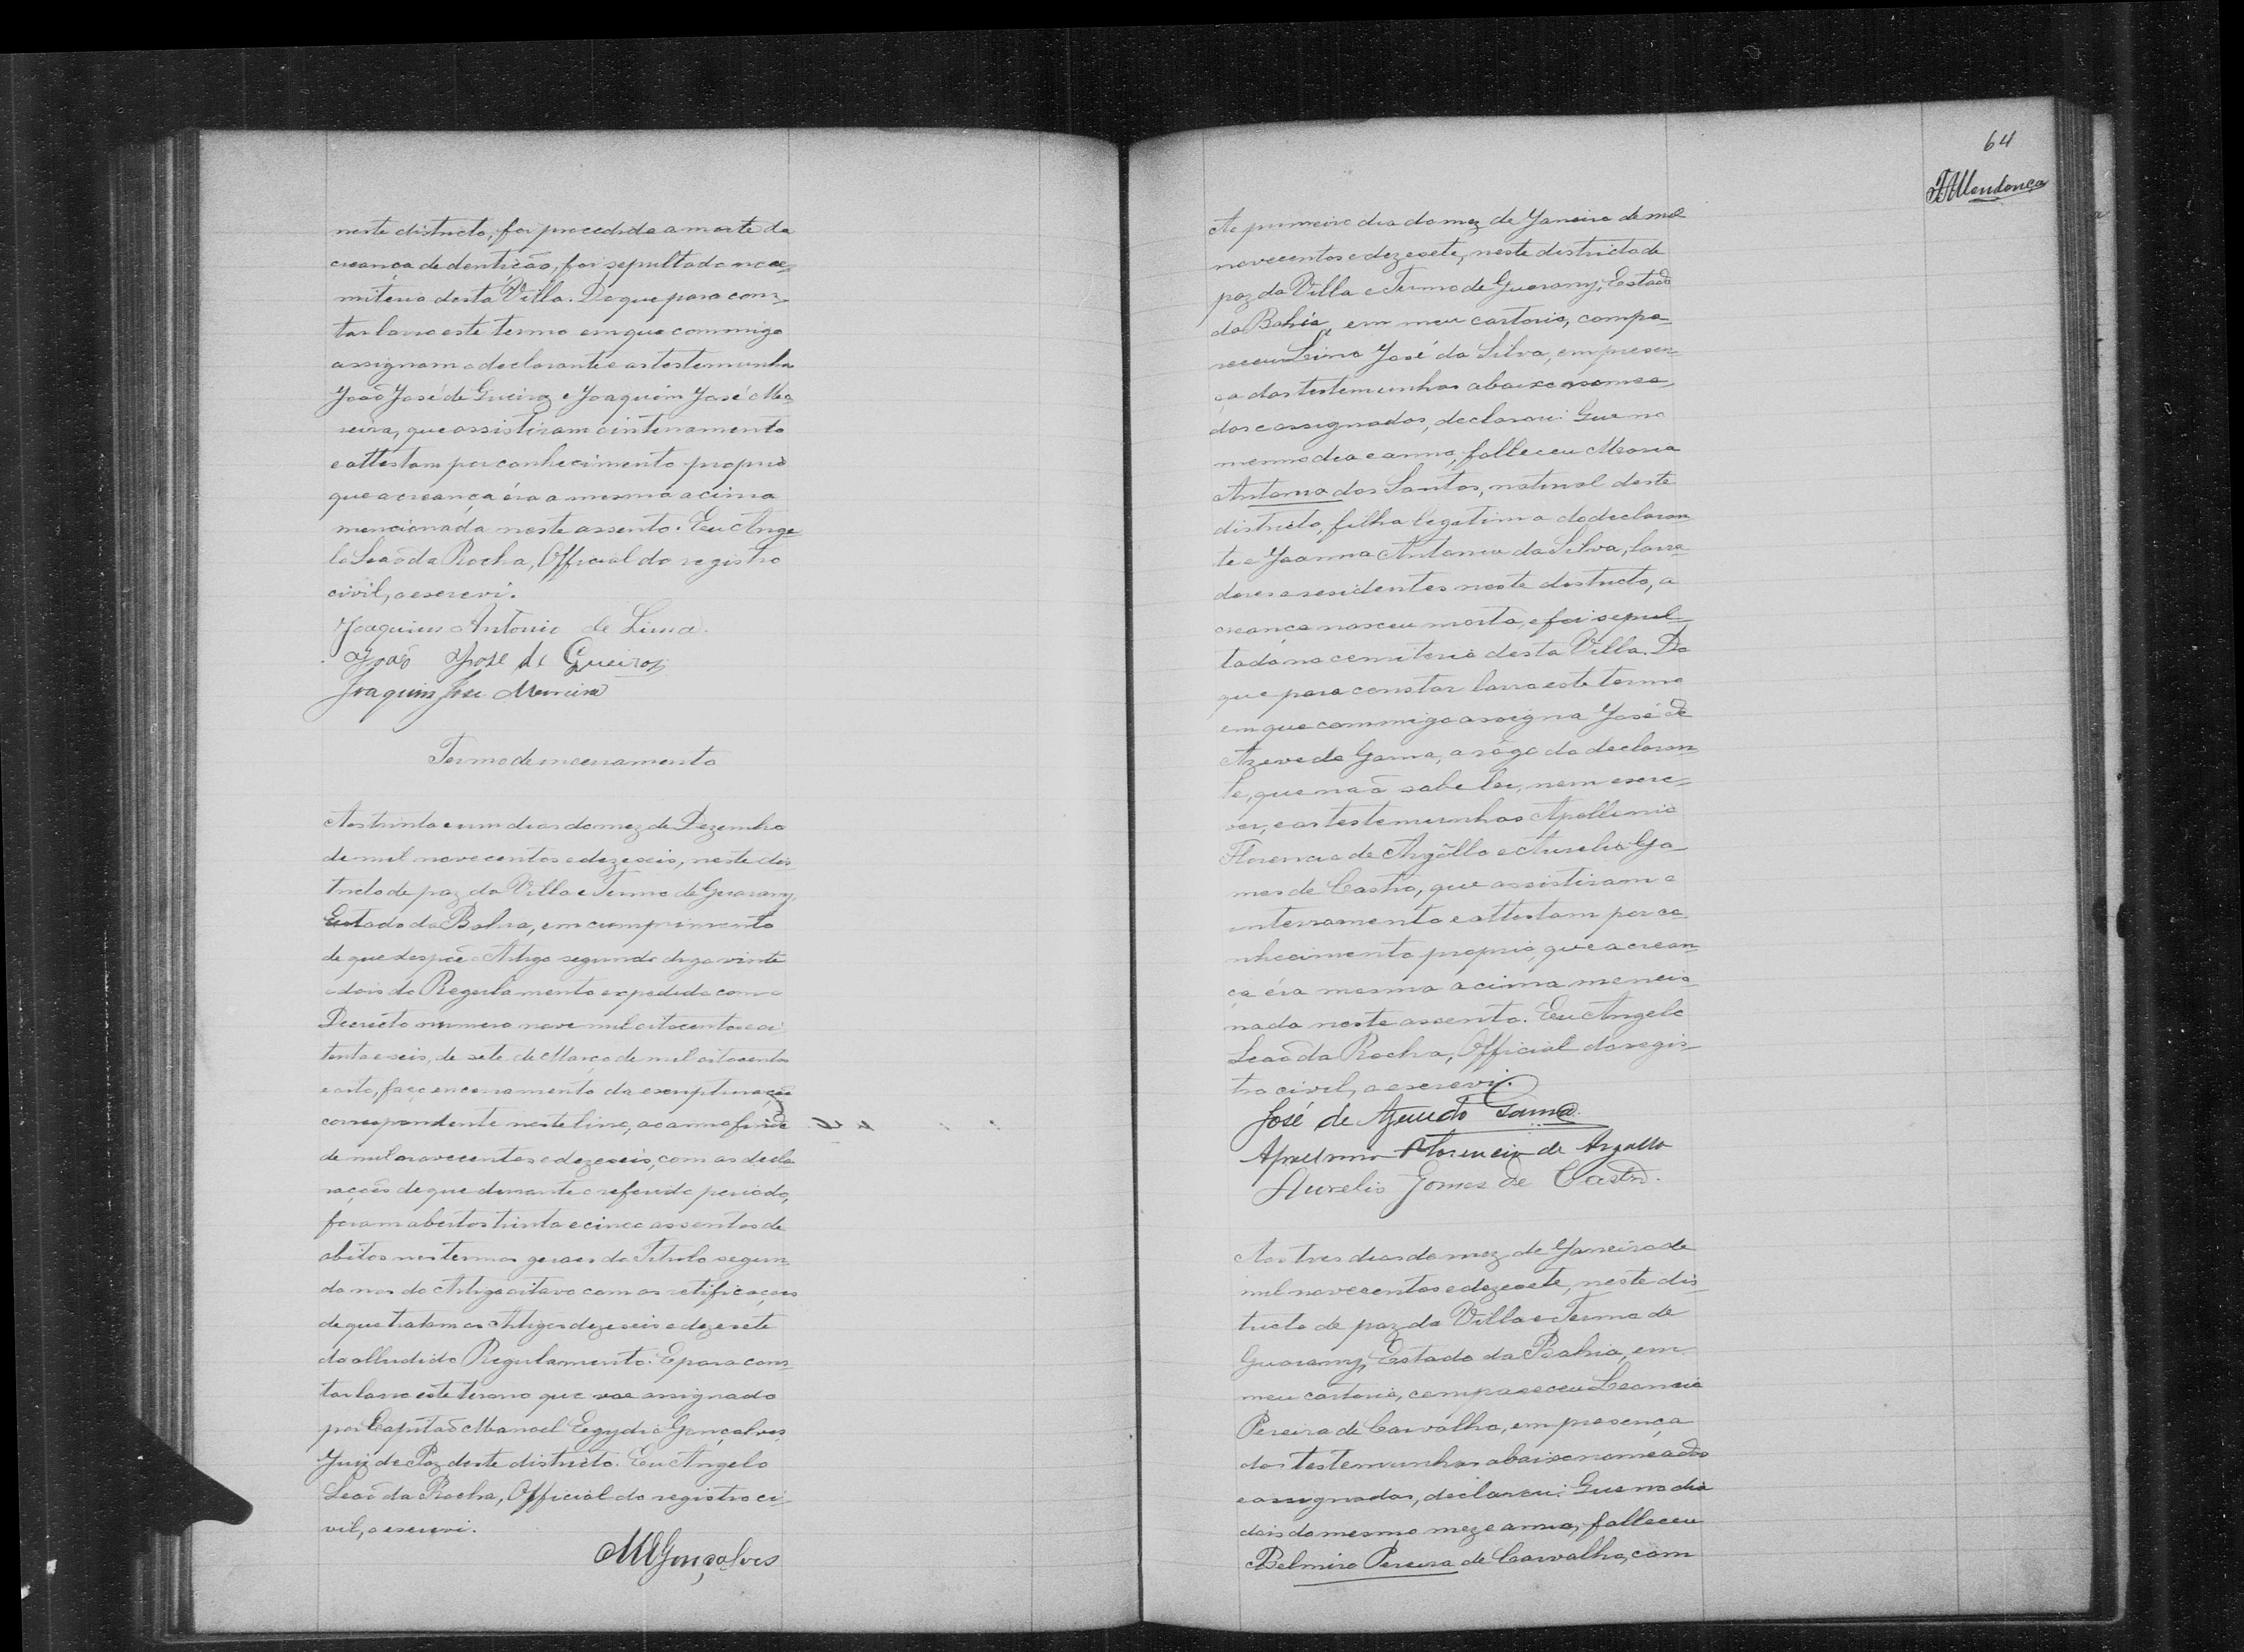 neste districto, foi procedida a morte da
creança de dentição, foi sepultada no ce-
miterio desta Villa. Do que para cons-
tar lavro este termo em que commigo
assignam o declarante e as testemunhas
João José de Queiroz e Joaquim José Mo-
reira, que assistiram o interramento
e attestam por conhecimento proprio
que a creança éra a mesma acima
mencionada neste assento. Eu Ange-
lo Leão da Rocha, Official do registro
civil, o escrevi.
Joaquim Antonio de Lima.
João José de Queiroz
Joaquim José Moreira
Termo de encerramento
Aos trinta e um dias do mez de Dezembro
de mil novecentos e dezeseis, neste dis-
tricto de paz da Villa e Termo de Guarany,
Estado da Bahia, em cumprimento
do que dispõe o Artigo segundo digo vinte
e dois do Regulamento expedido com o
Decreto numero nove mil oitocentos e oi-
tenta e seis, de sete de Março de mil oitocentos
e oito, faço encerramento da escripturação
correspondente neste livro, ao anno findo
de mil novecentos e dezeseis, com as decla-
rações de que durante o referido periodo,
foram abertos trinta e cinco assentos de
obitos nos termos geraes do Titulo segun-
do nos do Artigo oitavo com as retificações
de que tratam os Artigos dezeseis e dezesete
do alludido Regulamento. E para cons-
tar lavro este termo que vae assignado
por Capitão Manoel Egydio Gonçalves,
Juiz de Paz deste districto. Eu Angelo
Leão da Rocha, Official do registro ci-
vil, o escrevi.
MEGonçalves
64
Mendonça
Ao primeiro dia do mez de Janeiro de mil
novecentos e dezesete, neste districto de
paz da Villa e Termo de Guarany, Estado
da Bahia, em meu cartorio, compa-
receu Lino José da Silva, em presen-
ça das testemunhas abaixo nomea-
das e assignadas, declarou: Que no
mesmo dia e anno, falleceu Maria
Antonia dos Santos, natural deste
districto, filha legitima do declaran-
te e Joanna Antonia da Silva, lavra-
dores e residentes neste districto, a
creança nasceu morta, e foi sepul-
tada no cemiterio desta Villa. Do
que para constar lavro este termo
em que commigo assigna José de
Azevedo Gama, a rôgo do declaran-
te, que não sabe ler, nem escre-
ver, e as testemunhas Apollinio
Florencio de Argôllo e Aurelio Go-
mes de Castro, que assistiram o
interramento e attestam por co-
nhecimento proprio, que a crean-
ça éra mesma acima mencio-
nada neste assento. Eu Angelo
Leão da Rocha, Official do regis-
tro civil, o escrevi.
José de Azevedo Gama.
Florencio de Argollo
Aurelio Gomes de Castro.
Aos tres dias do mez de Janeiro de
mil novecentos e dezesete, neste dis-
tricto de paz da Villa e Termo de
Guarany, Estado da Bahia, em
meu cartorio, compareceu Leoncio
Pereira de Carvalho, em presença
das testemunhas abaixo nomeadas
e assignadas, declarou: Que no dia
dois do mesmo mez e anno, falleceu
Belmiro Pereira de Carvalho, com